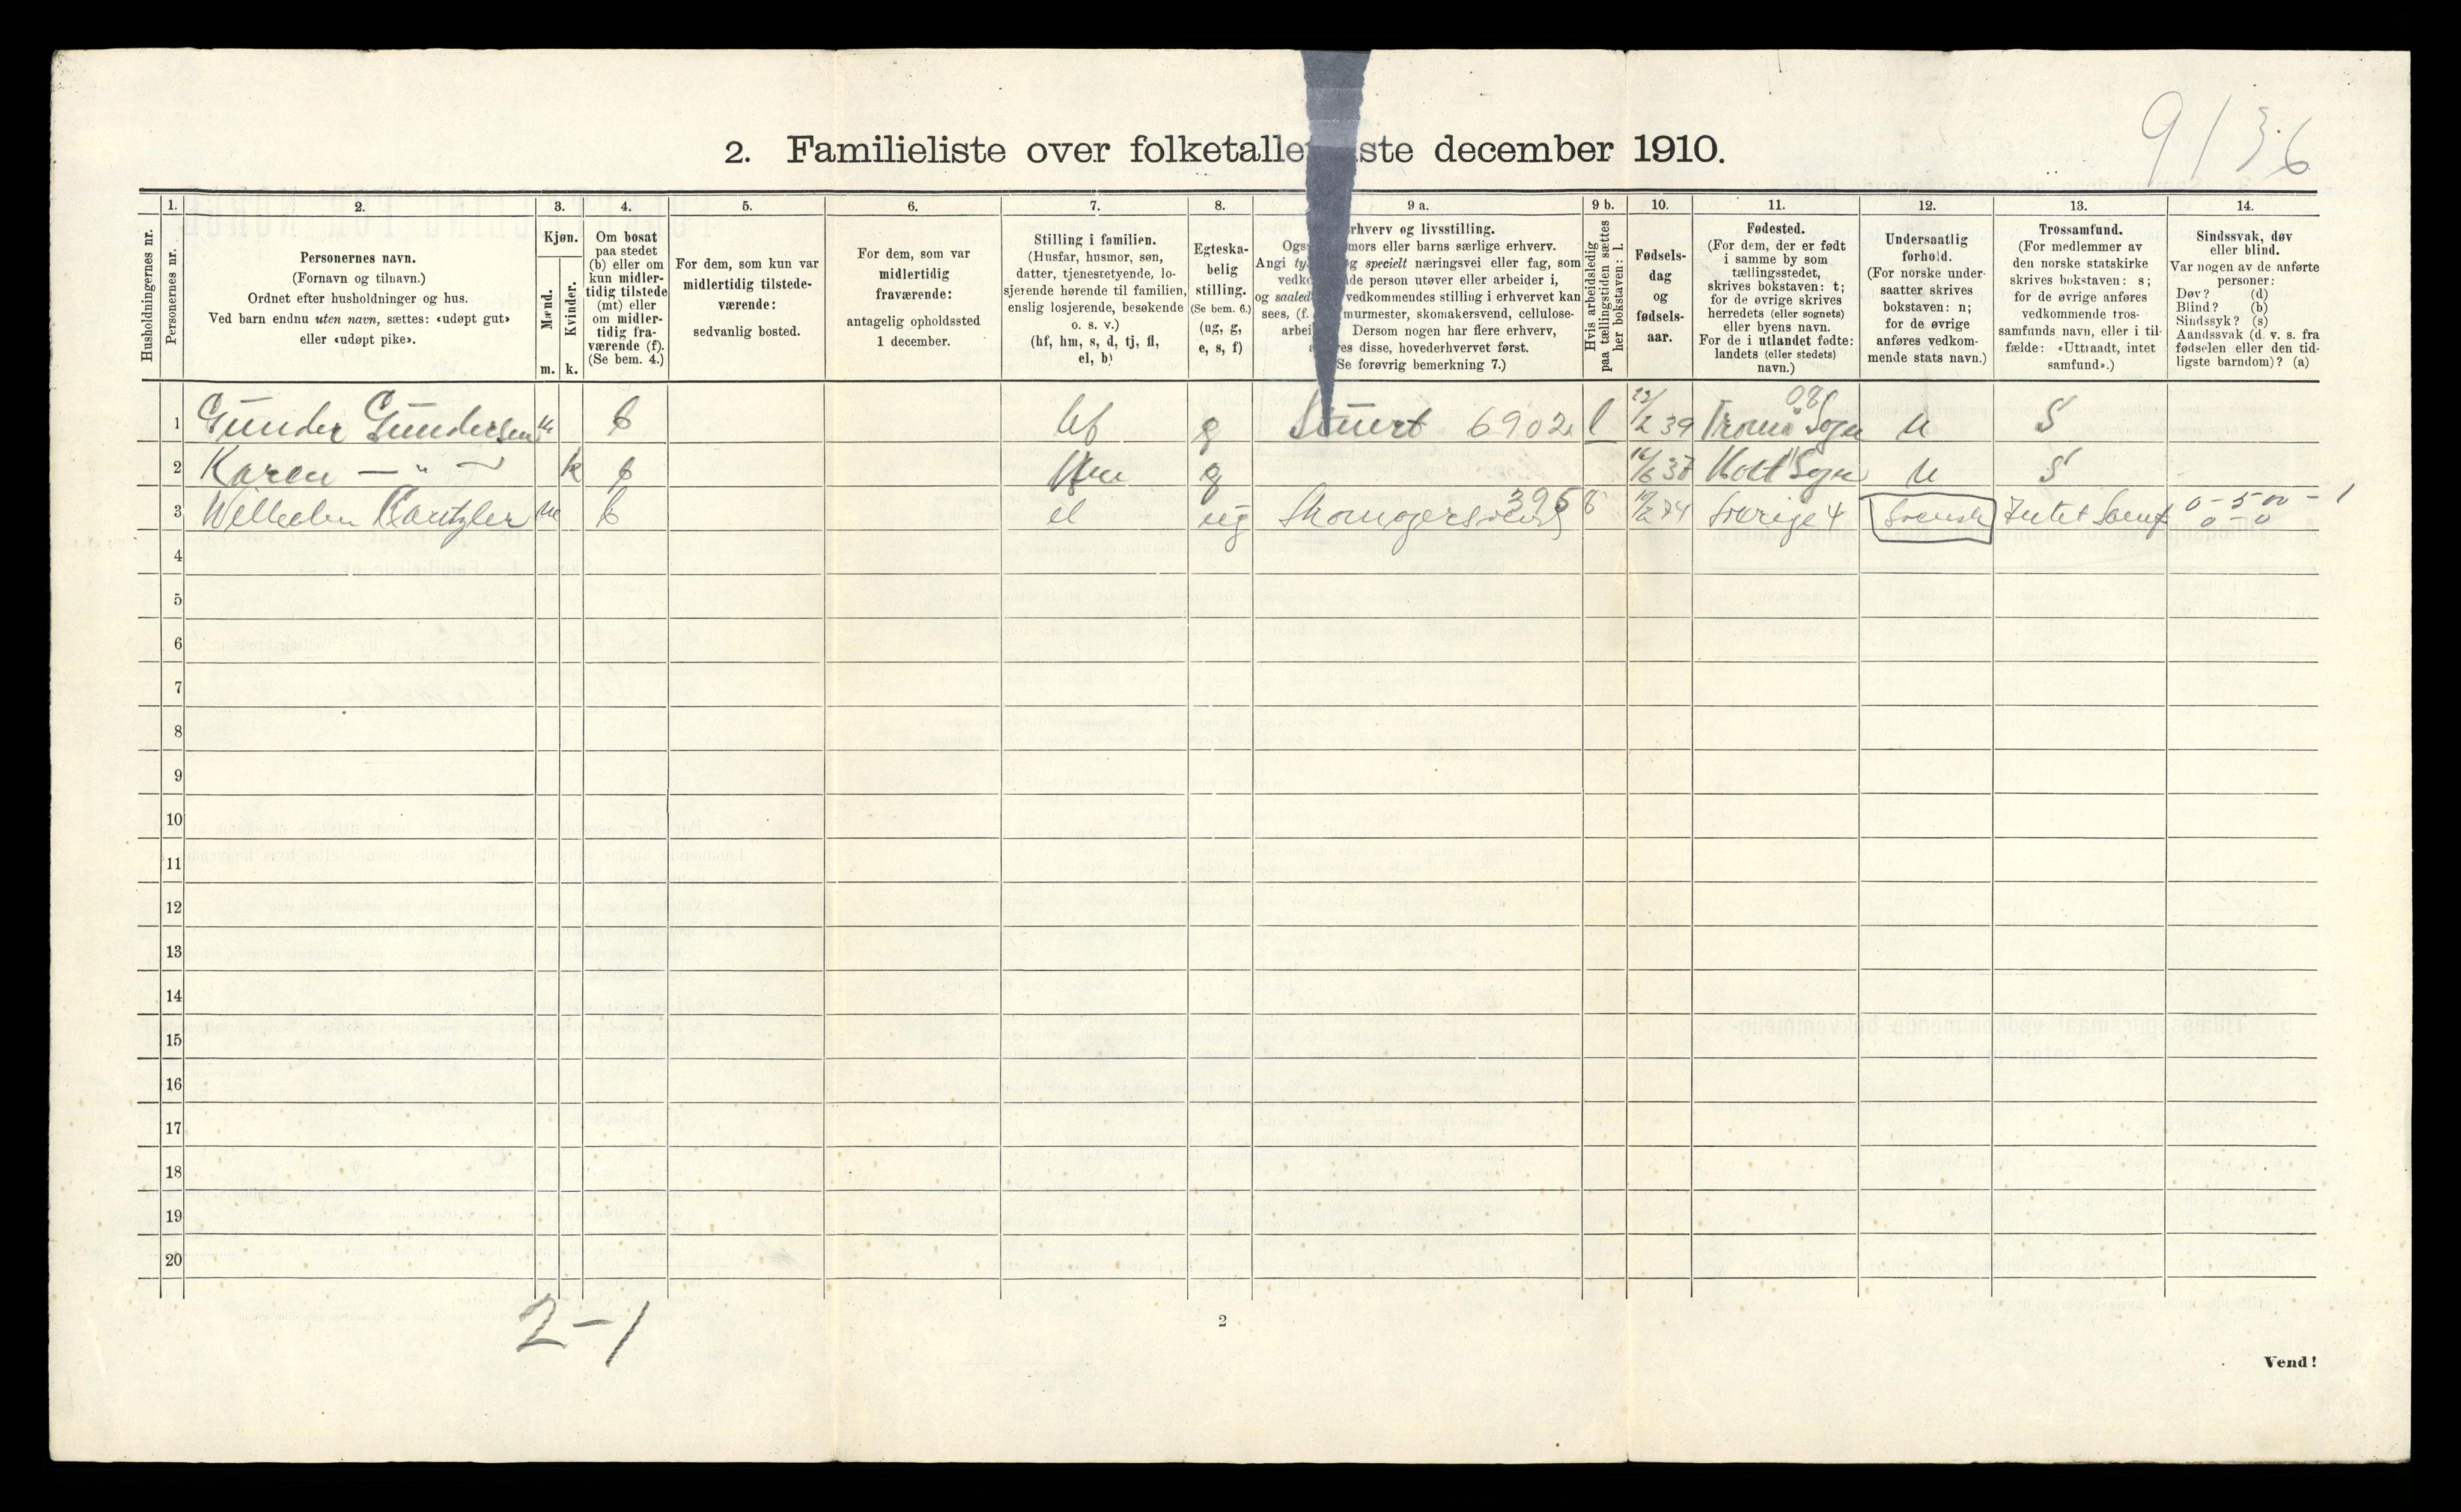 9136
2. Familieliste over folketalle iste december 1910.
1. 2. 3. 4. 5. 6. 7. 8. 9 a. 9 b. 10. 11. 12. 13. 14.
Husholdningernes nr.
Personernes nr.
Personernes navn.
(Fornavn og tilnavn.)
Ordnet efter husholdninger og hus.
Ved barn endnu uten navn, sættes: «udøpt gut»
eller «udøpt pike».
Kjøn.
Mænd.
Kvinder.
m. k.
Om bosat
paa stedet
(b) eller om
kun midler-
tidig tilstede
(mt) eller
om midler-
tidig fra-
værende (f).
(Se bem. 4.)
For dem, som kun var
midlertidig tilstede-
værende:
sedvanlig bosted.
For dem, som var
midlertidig
fraværende:
antagelig opholdssted
1 december.
Stilling i familien.
(Husfar, husmor, søn,
datter, tjenestetyende, lo-
sjerende hørende til familien,
enslig losjerende, besøkende
o. s. v.)
(hf, hm, s, d, tj, fl,
el, b)
Egteska-
belig
stilling.
(Se bem. 6.)
(ug, g,
e, s, f)
rhverv og livsstilling.
Ogs mors eller barns særlige erhverv.
Angi ty g specielt næringsvei eller fag, som
vedko de person utøver eller arbeider i,
og saaled vedkommendes stilling i erhvervet kan
sees, (f. murmester, skomakersvend, cellulose-
arbei Dersom nogen har flere erhverv,
a es disse, hovederhvervet først.
Se forøvrig bemerkning 7.)
Hvis arbeidsledig
paa tællingstiden sættes
her bokstaven: l.
Fødsels-
dag
og
fødsels-
aar.
Fødested.
(For dem, der er født
i samme by som
tællingsstedet,
skrives bokstaven: t;
for de øvrige skrives
herredets (eller sognets)
eller byens navn.
For de i utlandet fødte:
landets (eller stedets)
navn.)
Undersaatlig
forhold.
(For norske under-
saatter skrives
bokstaven: n;
for de øvrige
anføres vedkom-
mende stats navn.)
Trossamfund.
(For medlemmer av
den norske statskirke
skrives bokstaven: s;
for de øvrige anføres
vedkommende tros-
samfunds navn, eller i til-
fælde: «Uttraadt, intet
samfund».)
Sindssvak, døv
eller blind.
Var nogen av de anførte
personer:
Døv? (d)
Blind? (b)
Sindssyk? (s)
Aandssvak (d. v. s. fra
fødselen eller den tid-
ligste barndom)? (a)
1 Gunder Gundersen m b hf g Stuert 6902 l 2 39 Tromø Sogn n S
2 Karen — " — k b hm g Holt Sogn n S
3 Wilhelm m b el ug Skomagersvend 3958 Sverige 4 Svensk Intet Samf
4
5
6
7
8
9
10
11
12
13
14
15
16
17
18
19
20
2-1
2
Vend!